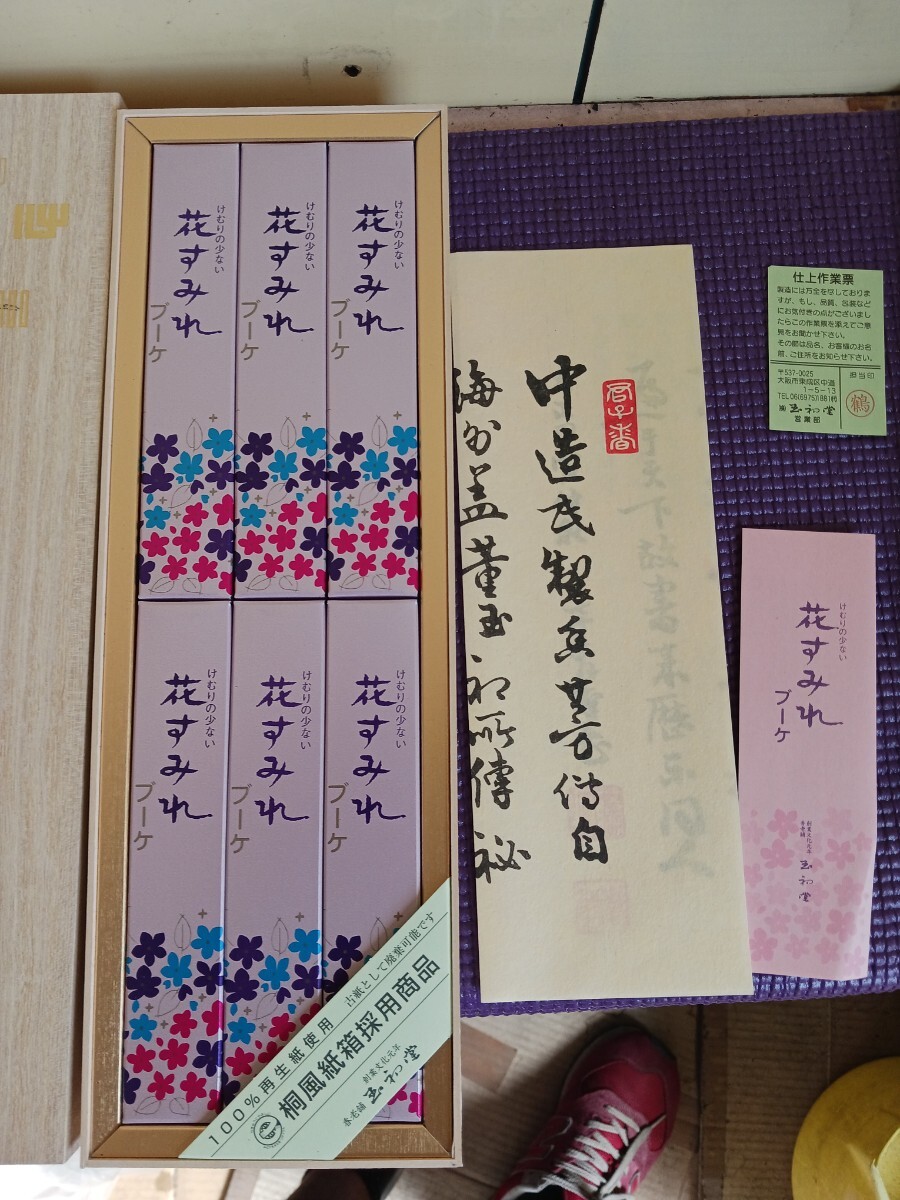 けむりの少ない
花すみれ
ブーケ
けむりの少ない
花すみれ
ブーケ
けむりの少ない
花すみれ
ブーケ
けむりの少ない
花すみれ
ブーケ
けむりの少ない
花すみれ
ブーケ
けむりの少ない
花すみれ
100%再生紙使用 古紙として廃棄可能です
桐風紙箱採用商品
創業文化元年
香老舗
玉初堂
君子香
中造氏製
芳傳自
海外盖薫玉初所傳祕
仕上作業票
製造には万全を尽しておりま
すが、もし、品質、包装など
にお気付きの点がございまし
たらこの作業票を添えてご意
見をお聞かせ下さい。
その節は品名、お客様のお名
前、ご住所をお知らせ下さい。
〒537-0025
大阪市東成区中道
1-5-13
TEL06(6975)1881㈹
㈱玉初堂
営業部
担当印
鶴
けむりの少ない
花すみれ
ブーケ
創業文化元年
香老舗
玉初堂